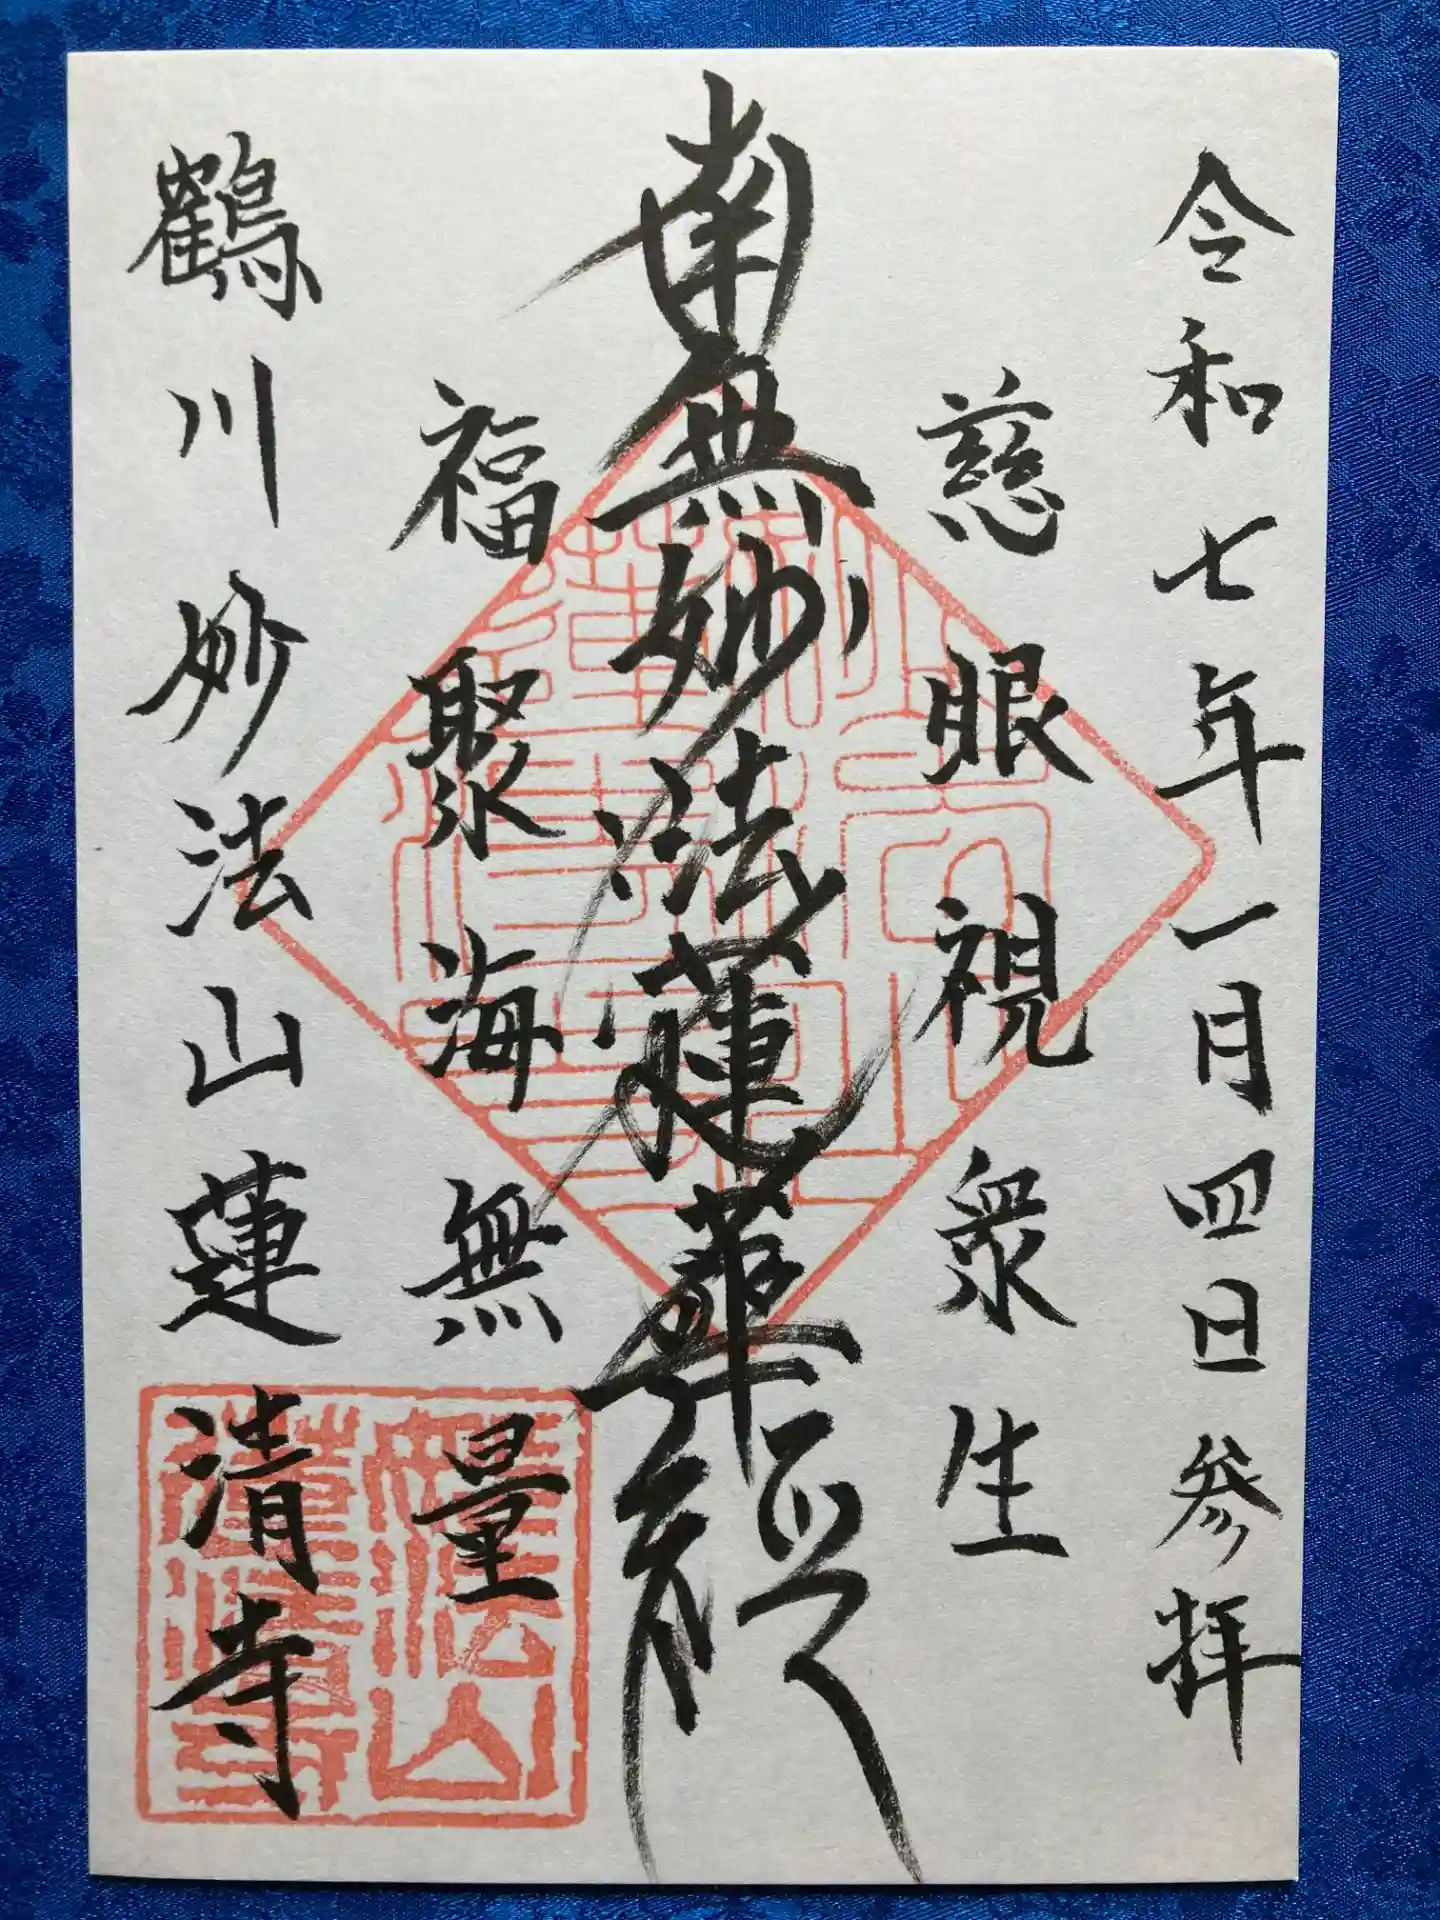 令和七年一月四日参拝
慈眼視衆生
南無妙法蓮華経
福聚海無量
鶴川妙法山蓮清寺
妙法山
蓮清寺